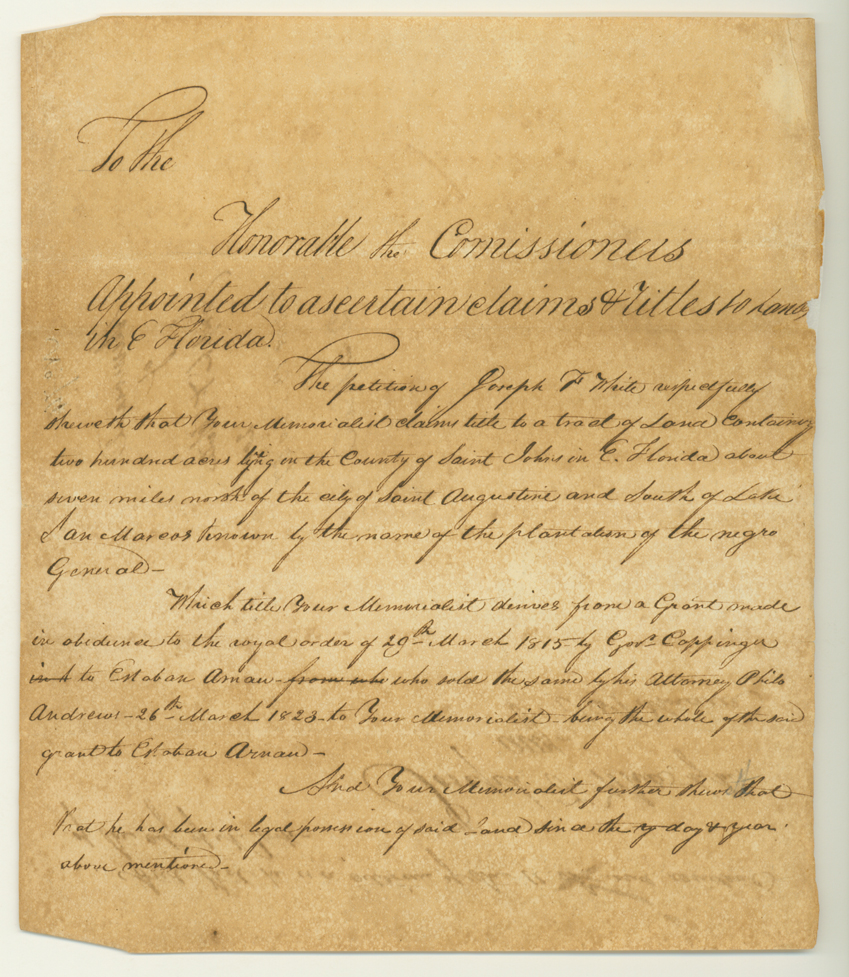 To the
Honorable the Comissioners
Appointed to ascertain claims & Titles to Lands
in E Florida.
The petition of Joseph F White respectfully
sheweth that Your Memorialist claims title to a tract of Land containing
two hundred acres lying in the County of Saint Johns in E. Florida about
seven miles north of the city of Saint Augustine and South of Lake
San Marcos known by the name of the plantation of the negro
General –
Which title Your Memorialist derives from a Grant made
in obidience to the royal order of 29th March 1815 by Govr. Coppinger
to Estaban Arnau who sold the same by his Attorney Philo
Andrews – 26th March 1823 – to Your Memorialist – being the whole of the said
grant to Estaban Arnau –
And Your Memorialist further shews that
that he has been in legal possession of said Land since the day & year
above mentioned –